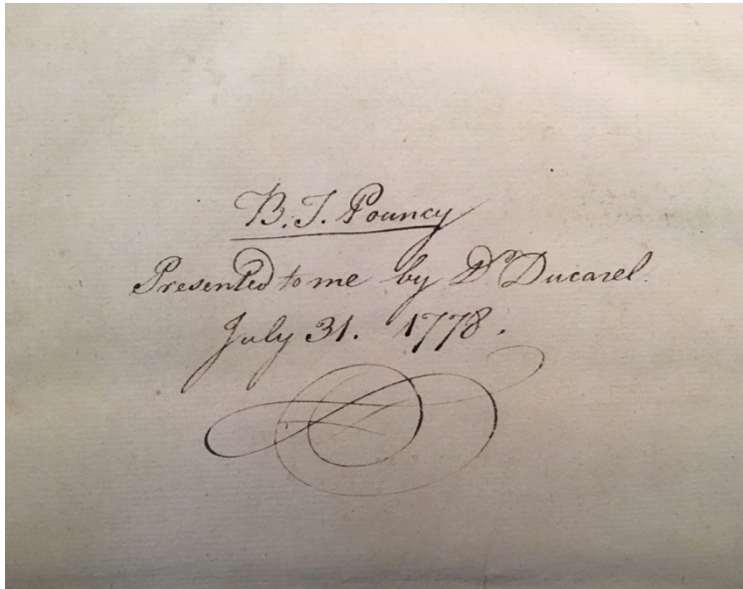 B. T. Pouncy
Presented to me by Dr Ducarel.
July 31. 1778.